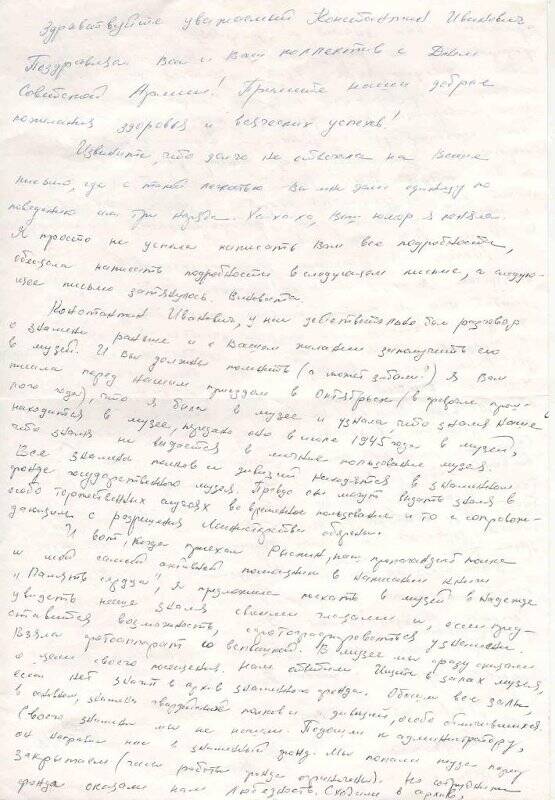 Здравствуйте уважаемый Константин Иванович.
Поздравляем Вас и Ваш коллектив с Днем
Советской Армии! Примите наши добрые
пожелания здоровья и всяческих успехов!
Извините что долго не отвечала на Ваше
письмо, где с такой легкостью Вы мне дали единицу по
поведению или три наряда. Ха-ха-ха, Ваш юмор я поняла.
Я просто не успела написать Вам все подробности,
обещала написать подробности в следующем письме, а следую-
щее письмо затянулось. Виновата.
Константин Иванович, у нас действительно был разговор
о знамени раньше и о Вашем желании заполучить его
в музей. И Вы должны помнить (а может забыли?) Я Вам
писала перед нашим приездом в Октябрьск (в феврале прош-
лого года), что я была в музее и узнала что знамя наше
находится в музее, передано оно в июле 1945 года в музей,
что знамя не выдается в личное пользование музея.
Все знамена полков и дивизий находятся в знаменном
фонде государственного музея. Правда они могут выдать знамя в
особо торжественных случаях во временное пользование и то в сопровож-
дении с разрешения Министерства обороны.
И вот, когда приехал наш пропагандист полка
и мой самый активный помощник в написании книги
"Память сердца", я предложила поехать в музей в надежде
увидеть наше знамя своими глазами и, если пред-
ставится возможность, сфотографироваться у знамени.
Взяла фотоаппарат со вспышкой. В музее мы сразу сказали
о цели своего посещения. Нам ответили Ищите в залах музея,
если нет значит в архиве знаменного фонда. Обошли все залы,
в основном, знамена гвардейских полков и дивизий, особо отличившихся.
Своего знамени мы не нашли. Подошли к администратору,
он направил нас в знаменный фонд. Мы попали туда перед
закрытием (часы работы фонда ограничены). Но сотрудники
фонда оказали нам любезность. Сходили в архив,